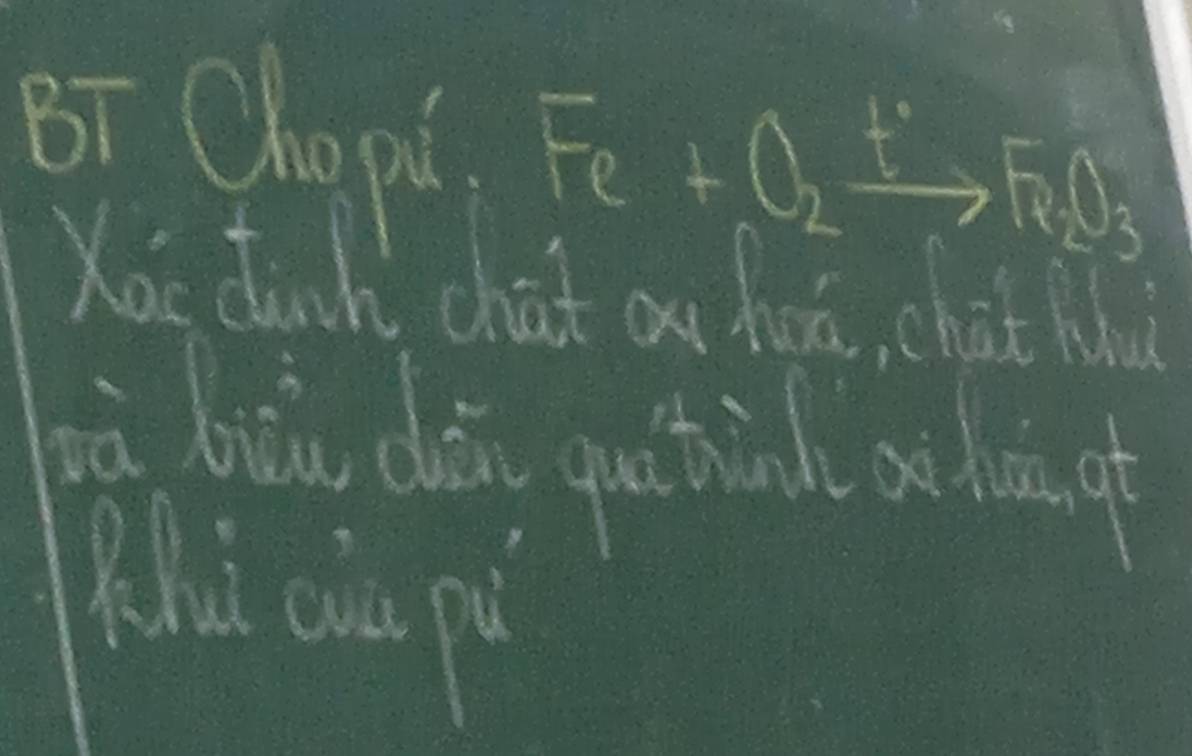 BT Cho pứ. Fe + O₂ t° → Fe₂O₃
Xác định chất oxi hoá, chất khử
và biểu diễn quá trình oxi hóa, qt
khử của pứ